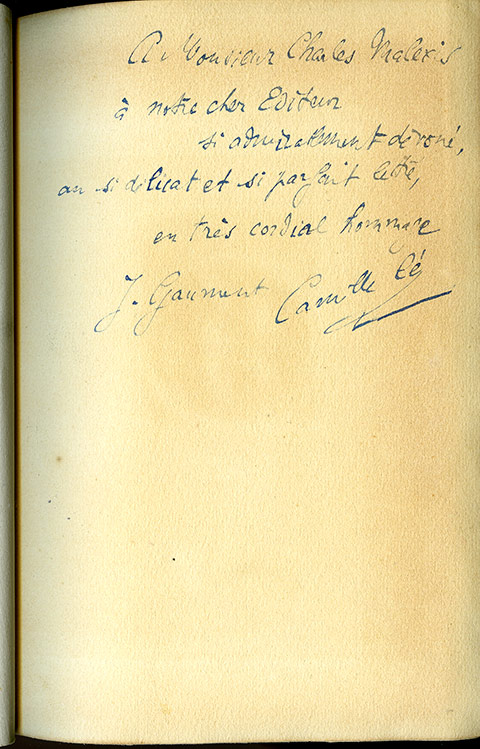 A Monsieur Charles Malexis
à notre cher Editeur
si admirablement dévoué,
au si délicat et si parfait lettré,
en très cordial hommage
J. Gaument Camille Cé